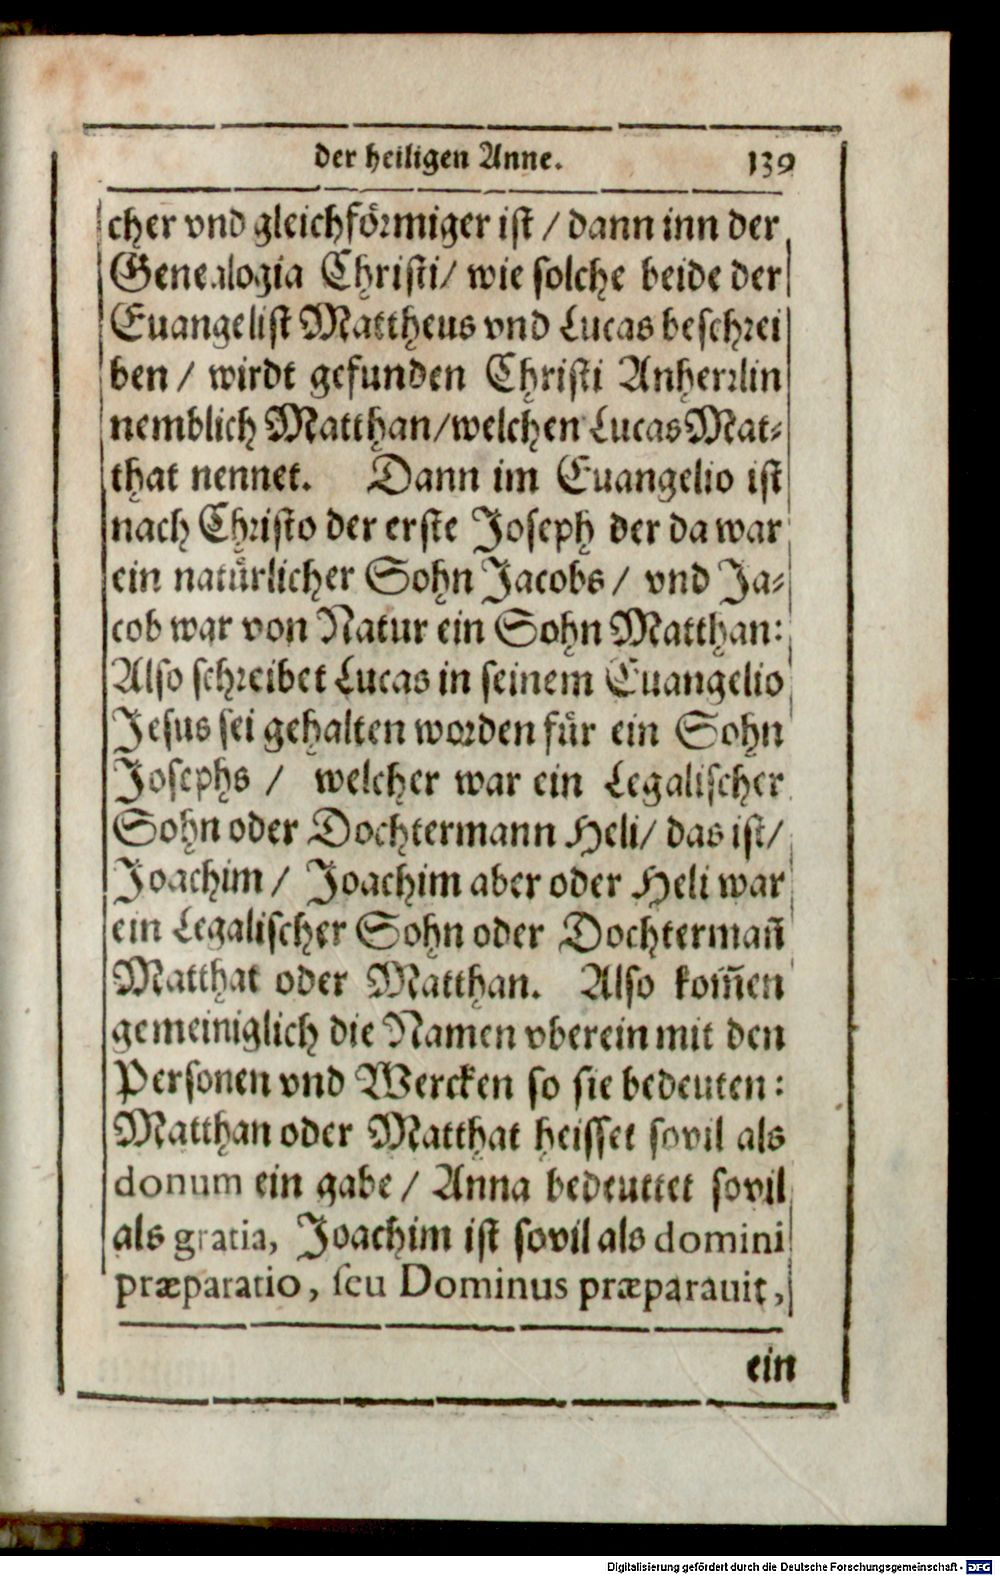 der heiligen Anne. 139
cher vnd gleichförmiger ist / dann inn der
Genealogia Christi/ wie solche beide der
Euangelist Mattheus vnd Lucas beschrei
ben / wirdt gefunden Christi Anherrlin
nemblich Matthan/welchen Lucas Mat-
that nennet. Dann im Euangelio ist
nach Christo der erste Joseph der da war
ein natürlicher Sohn Jacobs / vnd Ja-
cob war von Natur ein Sohn Matthan:
Also schreibet Lucas in seinem Euangelio
Jesus sei gehalten worden für ein Sohn
Josephs / welcher war ein Legalischer
Sohn oder Dochtermann Heli/ das ist/
Joachim / Joachim aber oder Heli war
ein Legalischer Sohn oder Dochtermañ
Matthat oder Matthan. Also kom̃en
gemeiniglich die Namen vberein mit den
Personen vnd Wercken so sie bedeuten:
Matthan oder Matthat heisset sovil als
donum ein gabe / Anna bedeuttet sovil
als gratia, Joachim ist sovil als domini
præparatio, seu Dominus præparauit,
ein
Digitalisierung gefördert durch die Deutsche Forschungsgemeinschaft - DFG